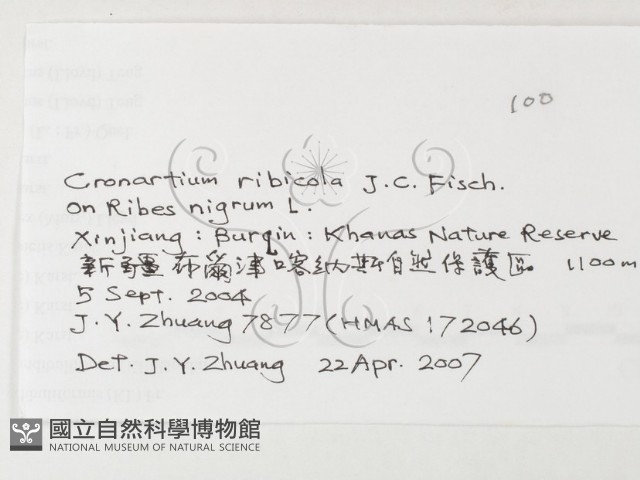 100
Cronartium ribicola J.C. Fisch.
on Ribes nigrum L.
Xinjiang : Burqin : Khanas Nature Reserve
新疆布爾津喀納斯自然保護區 1100m
5 Sept. 2004
J.Y. Zhuang 7877 (HMAS 172046)
Det. J.Y. Zhuang 22 Apr. 2007
國立自然科學博物館
NATIONAL MUSEUM OF NATURAL SCIENCE